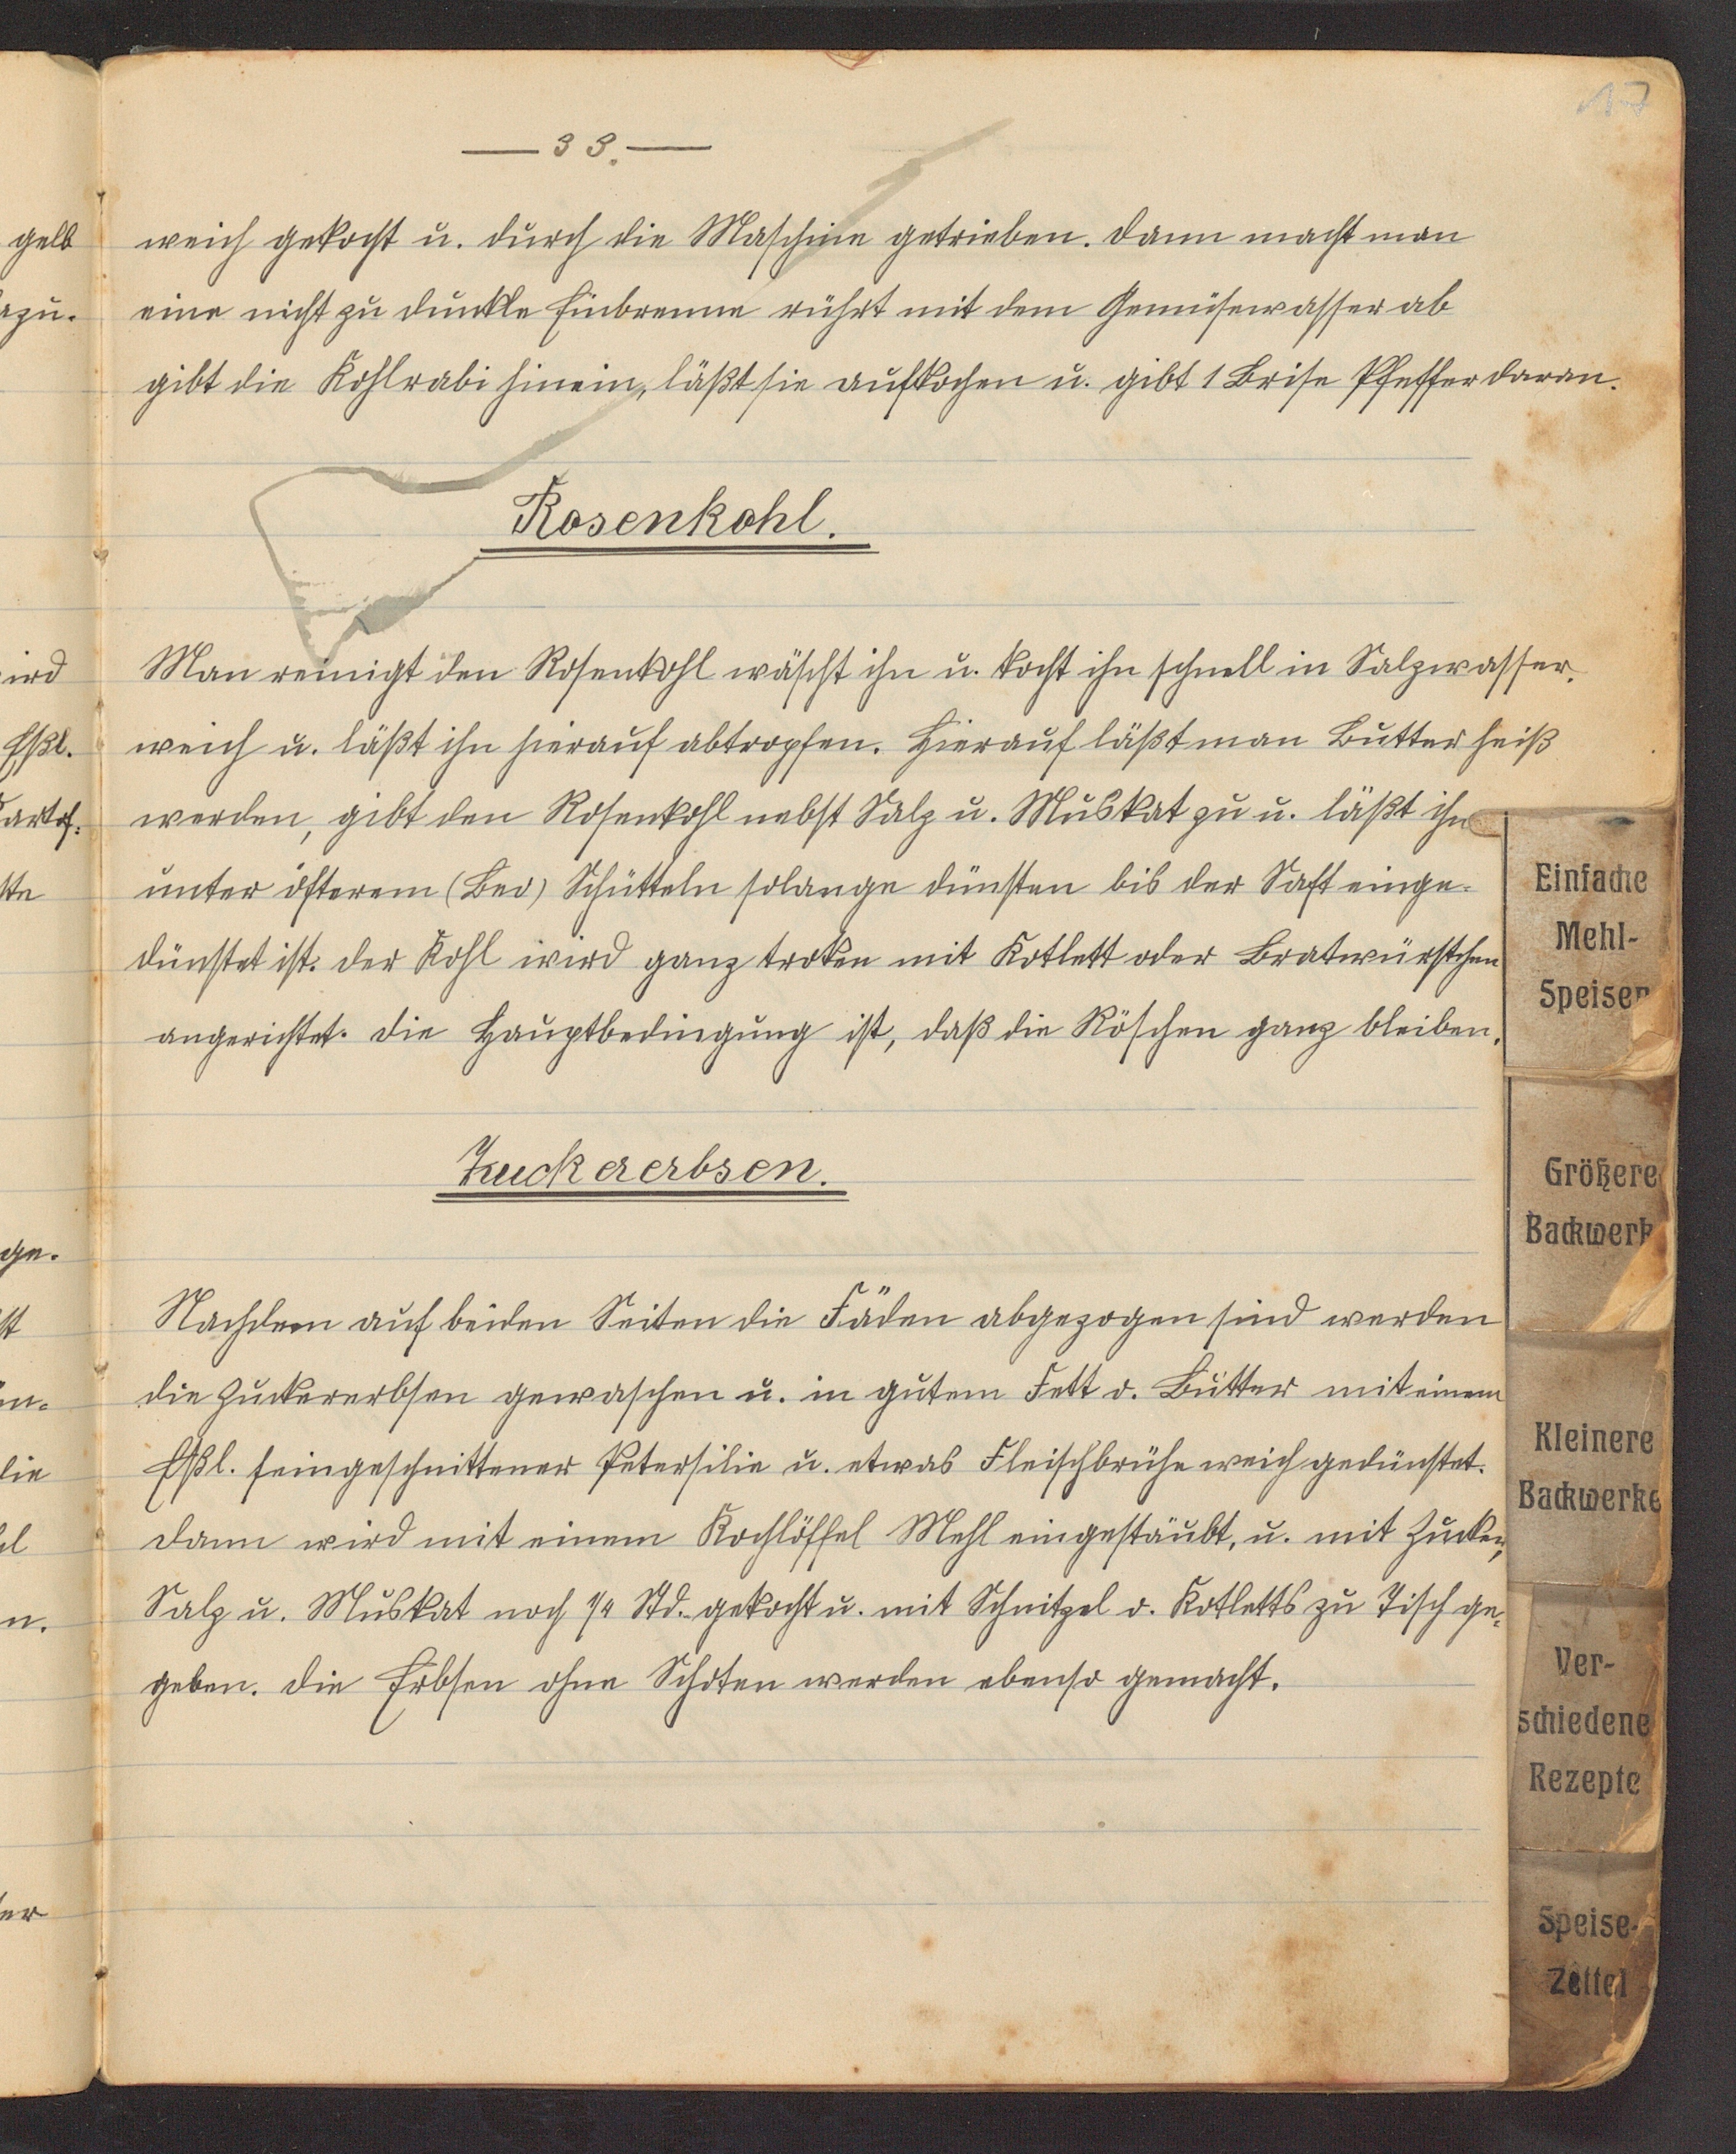 17
— 33. —
weich gekocht u. durch die Maschine getrieben. dann macht man
eine nicht zu dunkle Einbrenne rührt mit dem Gemüsewasser ab
gibt die Kohlrabi hinein, läßt sie aufkochen u. gibt 1 Brise Pfeffer daran.
Rosenkohl.
Man reinigt den Rosenkohl wäscht ihn u. kocht ihn schnell in Salzwasser.
weich u. läßt ihn hierauf abtropfen. Hierauf läßt man Butter heiß
werden, gibt den Rosenkohl nebst Salz u. Muskat zu u. läßt ihn
unter öfterem (Beo) Schütteln solange dünsten bis der Saft einge-
dünstet ist. der Kohl wird ganz troken mit Kotlett oder Bratwürstchen
angerichtet. die Hauptbedingung ist, daß die Röschen ganz bleiben.
Zuckererbsen.
Nachdem auf beiden Seiten die Fäden abgezogen sind werden
die Zuckererbsen gewaschen u. in gutem Fett o. Butter mit einem
Eßl. feingeschnittener Petersilie u. etwas Fleischbrühe weich gedünstet.
dann wird mit einem Kochlöffel Mehl eingestäubt, u. mit Zucker,
Salz u. Muskat noch 1/4 Std. gekocht u. mit Schnitzel o. Kotletts zu Tisch ge-
geben. die Erbsen ohne Schoten werden ebenso gemacht.
gelb
azu.
ird
Eßl.
artof-
ge.
lie
n.
er
Einfache
Mehl-
Speisen
Größere
Backwerk
Kleinere
Backwerke
Ver-
schiedene
Rezepte
Speise-
Zettel